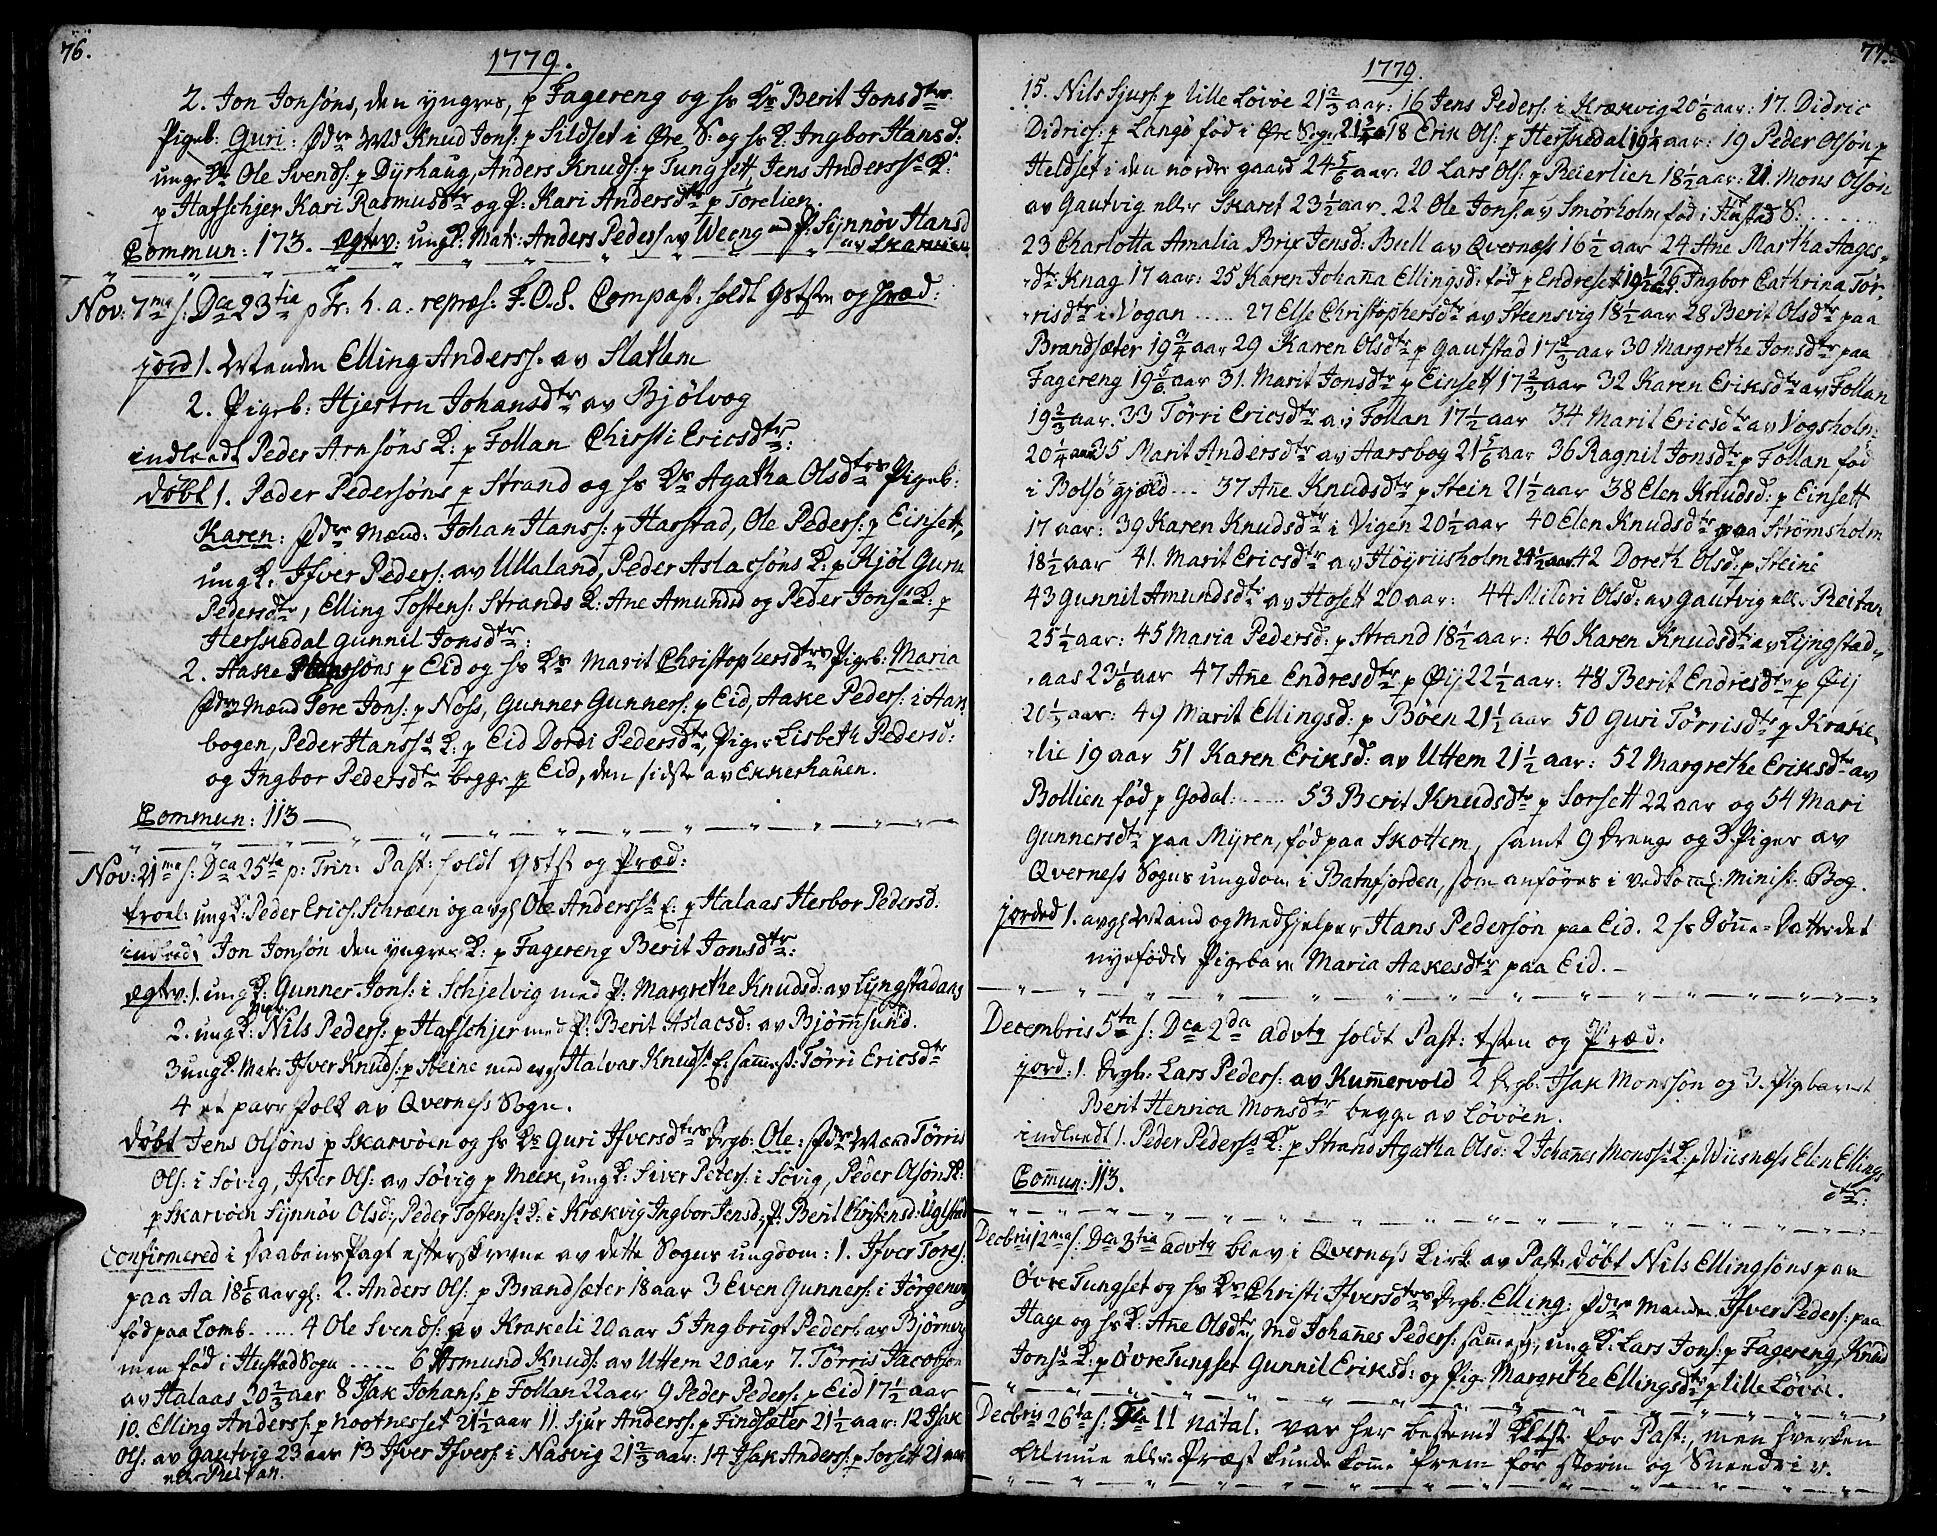 76.
1779.
2. Jon Jonsøns, den yngres, p Fagereng og hs Ks Berit Jonsdtrs
Pigeb: Guri: fdre Md Knud Jons: p Sildset i Øre S: og hs K. Ingbor Hansd:
ungk: Ole Svends: p Dyrhaug, Anders Knuds: p Tungsett, Jens Anderss K:
p Hafschjer Kari Rasmusdtr og P: Kari Andersdtr p Torelien.
Commun: 173. ægtev: ungk: Mat: Anders Peders av Weeng med P: Synnøv Hansd
av Skarvien
Nov: 7ma s: Dca 23tia p Tr: h. a. repræs: F.O.S. Compast: holdt gstste og præd:
jord 1. Manden Elling Anderss. av Slatlem
2. Pigeb: Hjertru Johansdtr av Bjølvog
indleedt Peder Arnsøns K: p Follan Chirsti Ericsdtr:
døbt 1. Peder Pedersøns p Strand og hs Ks Agatha Olsdtrs Pigeb:
Karen: fdre Mænd: Johan Hanss: p Harstad, Ole Peders: p Einsett,
ungk: Ifver Peders: av Ullaland, Peder Aslacsøns K: p Kjøl Guru
Pedersdtr, Elling Tostens: Strands K: Ane Amundsd og Peder Jonss K: p
Herskedal Gunnil Jonsdtr:
2. Aake Hanssøns p Eid og hs Ks Marit Christophersdtrs Pigeb: Maria
fdre Mænd Tore Jons: p Noss, Gunner Gunners: p Eid, Aake Peders: i Aan
bogen, Peder Hanss K: p Eid Dordi Pedersdtr, Piger Lisbeth Pedersd:
og Ingbor Pedersdtr begge p Eid, den sidste av Ekkerhauen.
Commun: 113
Nov: 21ma s: Dca 25ta p: Trin: Past: holdt gstst og Præd:
troel: ungk: Peder Erics: Schræen og avgl Ole Anderss E: p Halaas Herbor Pedersd:
indleedt Jon Jonsøn den yngres K: p Fagereng Berit Jonsdtr:
ægtev: 1. ungk: Gunner Jons: i Schjelvig med P: Margrethe Knudsd: av Lyngstadaas
2. ungk: Nils Peders: p Hafschjer med P: Berit Aslacsd: av Bjørnsund.
3 ungk: Mat: Ifver Knuds: p Steine med avgl Halvar Knuds E: sammest: Tørri Ericsdtr
4 et parr folk av Qverness Sogn.
døbt Jens Olsøns p Skarvøen og hs Ks Guri Ifversdtrs Drgb: Ole: fdre Mænd Tørris
Ols: i Søvig, Ifver Ols: av Søvig p Meek, ungk: Siver Peters: i Søvig, Peder Olsøn K:
p Skarvøen Synnøv Olsd:, Peder Tostens K: i Krækvig Ingbor Jensd:, P: Berit Christensd: Uglstad
Confirmered i Daabens Pagt efterskrevne av dette Sogns ungdom: 1. Ifver Tores:
paa Aa 18 5/6 aargl: 2. Anders Ols: p Brandsæter 18 aar 3 Even Gunners: i Jørgenvog
fød paa Lomb. ..... 4 Ole Svends: av Krakeli 20 aar 5 Ingbrigt Peders: av Bjørnevog
men fød i Hustad Sogn ..... 6 Asmund Knuds: av Uttem 20 aar 7. Tørris Jacobsøn
av Halaas 20 2/3 aar 8 Isak Johans: p Follan 22 aar 9 Peder Peders: p Eid 17 1/2 aar
10. Elling Anderss: p Nootnesset 21 1/2 aar 11. Sjur Anderss: p Findsæter 21 1/2 aar: 12 Isak
Ols: av Gautvig 23 aar 13 Ifver Ifvers: i Nasvig 21 2/3 aar: 14 Isak Anders: p Sorsett 21 aar
eller Reitan.
77.
1779.
15. Nils Sjurs: p lille Løvøe 21 2/3 aar: 16 Jens Peders: i Krækvig 20 1/6 aar: 17. Didric
Didrics: p Langø fød i Øre Sogn 21 18 Erik Ols: p Herskedal 19 1/4 aar: 19 Peder Olsøn p
Heldset i den nordre gaard 24 5/6 aar: 20 Lars Ols: p Beierlien 18 1/2 aar: 21. Mons Olsøn
av Gautvig eller Skaret 23 1/2 aar. 22 Ole Jons: av Smørholm fød i Hustad S: .......
23 Charlotta Amalia Brix Jensd: Bull av Qverness 16 1/2 aar 24 Ane Martha Aages
dtr Knag 17 aar: 25 Karen Johana Ellingsd: fød p Endreset 19 1/2 26 Ingbor Cathrina Tør
risdtr i Vogan ..... 27 Else Christophersdtr av Steensvig 18 1/2 aar 28 Berit Olsdtr paa
Brandsæter 19 3/4 aar 29 Karen Olsdtr p Gautstad 17 2/3 aar 30 Margrethe Jonsdtr paa
Fagereng 19 5/6 aar 31. Marit Jonsdtr p Einsett 17 2/3 aar 32 Karen Eriksdtr av Follan
19 2/3 aar. 33 Tørri Ericsdtr av Follan 17 1/2 aar 34 Marit Ericsdtr av Vogsholm:
20 1/4 aar 35 Marit Andersdtr av Aarsbog 21 5/6 aar 36 Ragnil Jonsdtr p Follan fød
i Bolsø gjæld... 37 Ane Knudsdtr p Stein 21 1/2 aar 38 Elen Knudsd: p Einsett
17 aar: 39 Karen Knudsdtr i Vigen 20 1/2 aar 40 Elen Knudsdtr paa Strømsholm
18 1/2 aar 41. Marit Ericsdtr av Høyriisholm 24 1/2 aar 42 Doreth Olsd: p Steine
43 Gunnil Amundsdtr av Hosett 20 aar: 44 Mildri Olsd: av Gautvig ell. Reitan
25 1/2 aar: 45 Maria Pedersd: p Strand 18 1/2 aar: 46 Karen Knudsdtr av Lyngstad
aas 23 1/6 aar 47 Ane Endresdtr p Øij 22 1/2 aar: 48 Berit Endresdtr p Øij
20 1/3 aar: 49 Marit Ellingsd: p Bøen 21 1/2 aar 50 Guri Tørrisdtr p Krake
lie 19 aar 51 Karen Eriksd: av Uttem 21 1/2 aar: 52 Margrethe Eriksdtr av
Bollien fød p Godal: ..... 53 Berit Knudsdtr p Sorsett 22 aar og 54 Mari
Gunnersdtr paa Myren, fød paa Skottem, samt 9 Drenge og 3 Piger av
Qverness Sogns ungdom i Batnfjorden, som anføres i vedkom: Minist. Bog.
jorded 1. avgl Mand og Medhjelper Hans Pedersøn paa Eid. 2 hs Sønne-Datter det
nyefødde Pigebarn Maria Aakesdtr paa Eid. –
Decembris 5ta s: Dca 2da advtq holdt Past: tsten og Præd:
jord: 1. Drgb: Lars Peders: av Kumervold 2 Drgb: Isak Monssøn og 3. Pigbarnet
Berit Henrica Monsdtr begge av Løvøen.
indleedt 1. Peder Pederss K: p Strand Agatha Olsd: 2 Johanes Monss K: p Wiisness Elen Ellings
dtr:
Comun: 113.
Decbris 12ma s: Dca 3tia advtq blev i Qverness Kirk av Past: døbt Nils Ellingsøns paa
Øvre Tungset og hs Ks Christi Ifversdtrs Drgb: Elling: fdre Mænden Ifver Peders: paa
Hage og hs K: Ane Olsdtr, Md Johanes Peders: samest:, ungk: Lars Jons: p Fagereng, Knud
Jonss K: p Øvre Tungset Gunnil Eriksd: og Pig: Margrethe Ellingsdtr p lille Løvø.
Decbris 26ta s: Fia 11 natal. var her bestemt for Past:, men hverken
Almue eller Præst kunde kome frem for storm og Sneedriv.